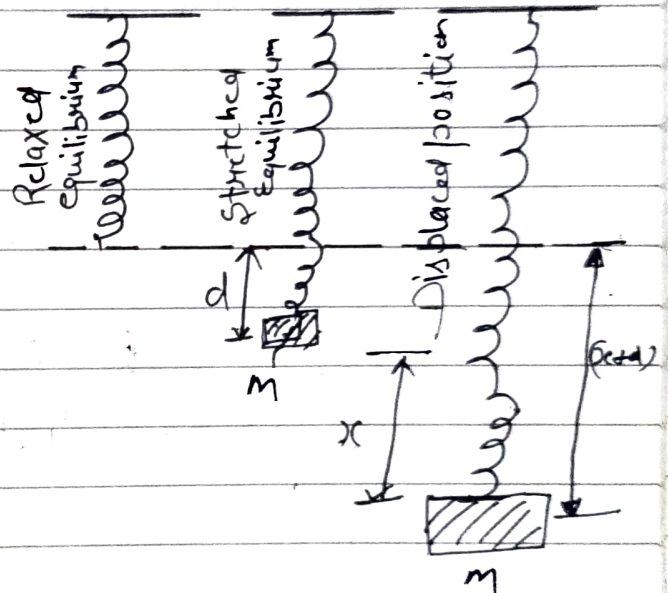 Relaxed
equilibrium
Stretched
Equilibrium
Displaced position
d
m
x
(x+d)
m